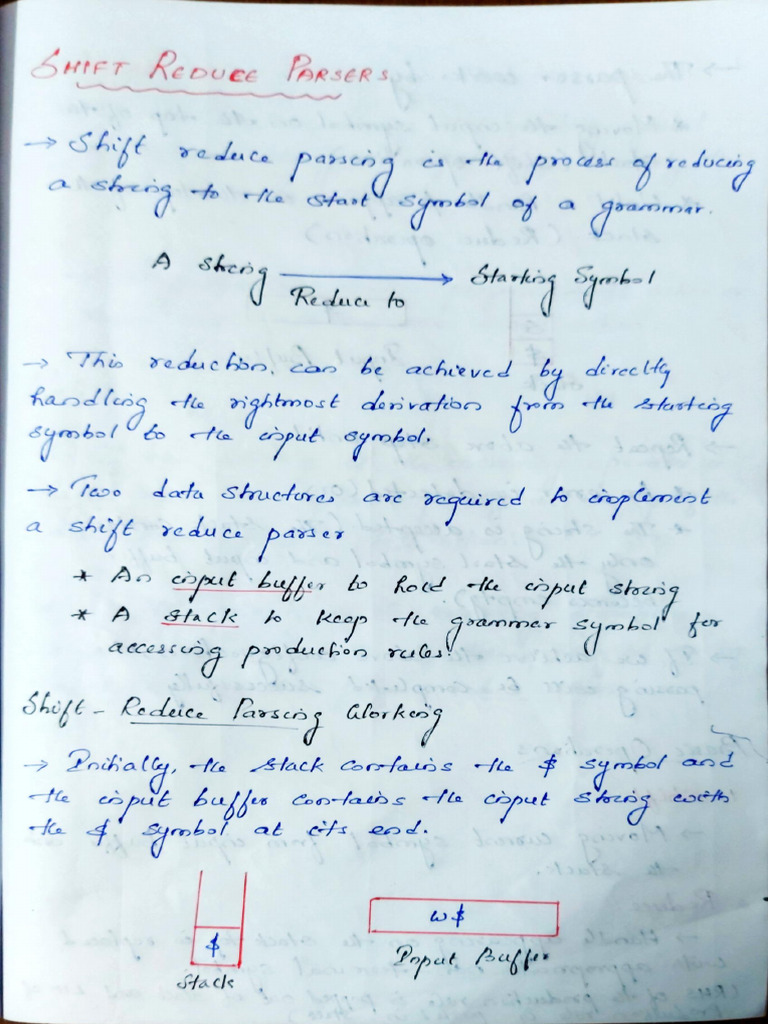 SHIFT REDUCE PARSERS
→ Shift reduce parsing is the process of reducing
a string to the start symbol of a grammar.
A string → Starting Symbol
Reduce to
→ This reduction can be achieved by directly
handling the rightmost derivation from the starting
symbol to the input symbol.
→ Two data structures are required to implement
a shift reduce parser
* An input buffer to hold the input string
* A stack to keep the grammar symbol for
accessing production rules.
Shift - Reduce Parsing Working
→ Initially, the stack contains the $ symbol and
the input buffer contains the input string with
the $ symbol at its end.
$
w$
Stack
Input Buffer